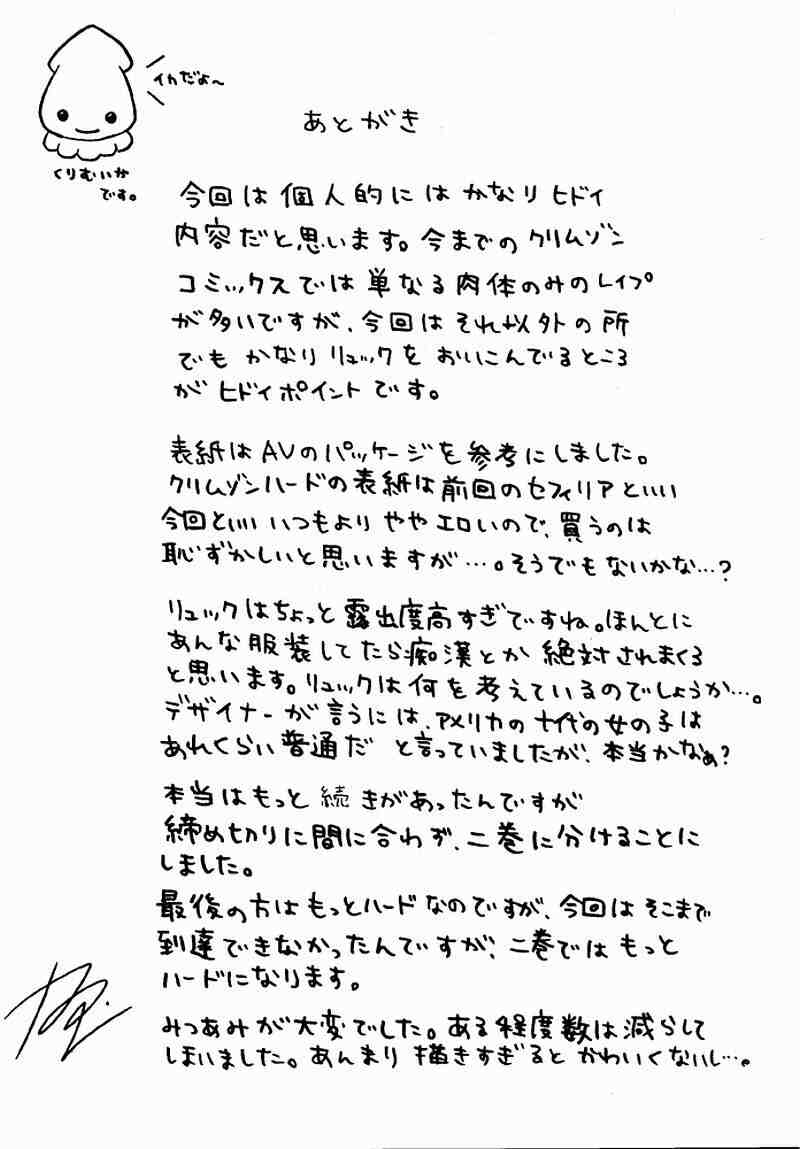 イカだよ〜
くりむいか
です。
あとがき
今回は個人的にはかなりヒドイ
内容だと思います。今までのクリムゾン
コミックスでは単なる肉体のみのレイプ
が多いですが、今回はそれ以外の所
でもかなりリュックをおいこんでるところ
がヒドイポイントです。
表紙はAVのパッケージを参考にしました。
クリムゾンハードの表紙は前回のセフィリアといい
今回といいいつもよりややエロいので、買うのは
恥ずかしいと思いますが…。そうでもないかな…?
リュックはちょっと露出度高すぎですね。ほんとに
あんな服装してたら痴漢とか絶対されまくる
と思います。リュックは何を考えているのでしょうか…。
デザイナーが言うには、アメリカの十代の女の子は
あれくらい普通だと言っていましたが、本当かなぁ?
本当はもっと続きがあったんですが
締め切りに間に合わず、二巻に分けることに
しました。
最後の方はもっとハードなのですが、今回はそこまで
到達できなかったんですが、二巻ではもっと
ハードになります。
みつあみが大変でした。ある程度数は減らして
しまいました。あんまり描きすぎるとかわいくないし…。